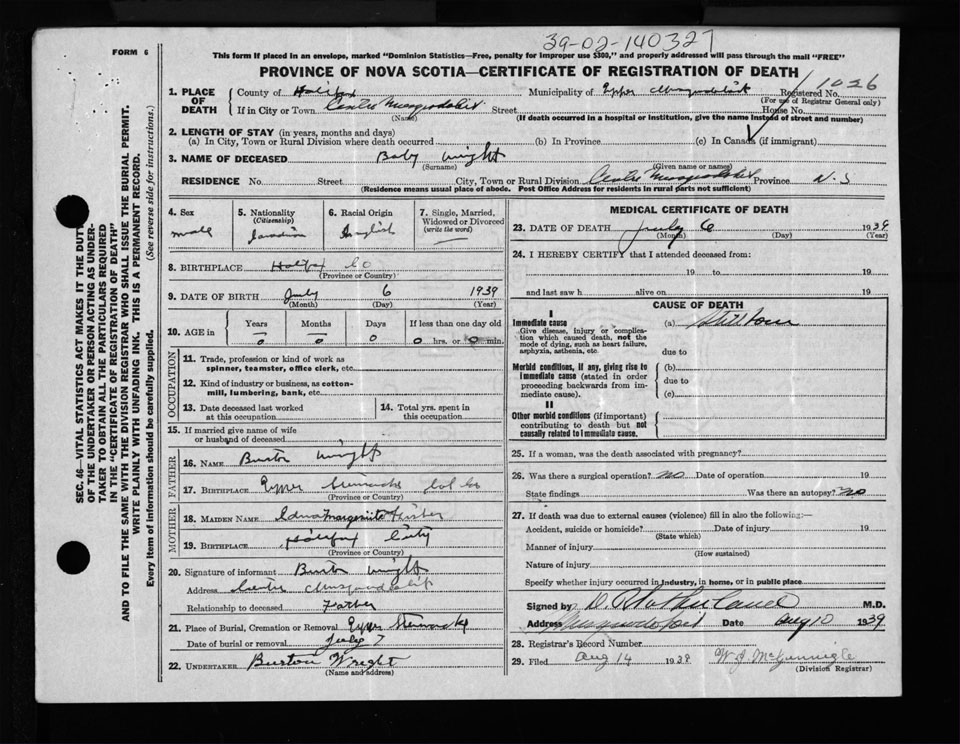 39-02-140327
FORM 6
This form if placed in an envelope, marked "Dominion Statistics—Free, penalty for improper use $300," and properly addressed will pass through the mail "FREE"
PROVINCE OF NOVA SCOTIA—CERTIFICATE OF REGISTRATION OF DEATH
1. PLACE OF DEATH
County of Halifax Municipality of Upper Musquodoboit Registered No. 1026
(For use of Registrar General only)
If in City or Town Centre Musquodoboit Street House No.
(Name) (If death occurred in a hospital or institution, give the name instead of street and number)
2. LENGTH OF STAY (in years, months and days)
(a) In City, Town or Rural Division where death occurred (b) In Province (c) In Canada (if immigrant)
3. NAME OF DECEASED Baby Wright
(Surname) (Given name or names)
RESIDENCE No. Street City, Town or Rural Division Centre Musquodoboit Province N.S
(Residence means usual place of abode. Post Office Address for residents in rural parts not sufficient)
4. Sex
male
5. Nationality
(Citizenship)
Canadian
6. Racial Origin
English
7. Single, Married, Widowed or Divorced
(write the word)
8. BIRTHPLACE Halifax Co
(Province or Country)
9. DATE OF BIRTH July 6 1939
(Month) (Day) (Year)
10. AGE in
Years Months Days If less than one day old
0 0 0 0 hrs. or 0 min.
OCCUPATION
11. Trade, profession or kind of work as
spinner, teamster, office clerk, etc.
12. Kind of industry or business, as cotton-
mill, lumbering, bank, etc.
13. Date deceased last worked
at this occupation
14. Total yrs. spent in
this occupation
15. If married give name of wife
or husband of deceased
FATHER
16. NAME Burton Wright
17. BIRTHPLACE Upper Stewiacke Col Co
(Province or Country)
MOTHER
18. MAIDEN NAME Edna Margerite
19. BIRTHPLACE Halifax City
(Province or Country)
20. Signature of informant Burton Wright
Address Centre Musquodoboit
Relationship to deceased Father
21. Place of Burial, Cremation or Removal Upper Stewiacke
Date of burial or removal July 7
22. UNDERTAKER Burton Wright
(Name and address)
MEDICAL CERTIFICATE OF DEATH
23. DATE OF DEATH July 6 1939
(Month) (Day) (Year)
24. I HEREBY CERTIFY that I attended deceased from:
19 to 19
and last saw h alive on 19
CAUSE OF DEATH
I
Immediate cause
Give disease, injury or complica-
tion which caused death, not the
mode of dying, such as heart failure,
asphyxia, asthenia, etc.
(a) Still born
due to
Morbid conditions, if any, giving rise to
immediate cause (stated in order
proceeding backwards from im-
mediate cause).
(b)
due to
(c)
II
Other morbid conditions (if important)
contributing to death but not
causally related to immediate cause.
25. If a woman, was the death associated with pregnancy?
26. Was there a surgical operation? no Date of operation 19
State findings Was there an autopsy? no
27. If death was due to external causes (violence) fill in also the following:—
Accident, suicide or homicide? Date of injury 19
(State which)
Manner of injury
(How sustained)
Nature of injury
Specify whether injury occurred in industry, in home, or in public place
Signed by M.D.
Address Musquodoboit Date Aug 10 1939
28. Registrar's Record Number
29. Filed Aug 14 1939
(Division Registrar)
SEC. 46—VITAL STATISTICS ACT MAKES IT THE DUTY
OF THE UNDERTAKER OR PERSON ACTING AS UNDER-
TAKER TO OBTAIN ALL THE PARTICULARS REQUIRED
IN THE "CERTIFICATE OF REGISTRATION OF DEATH"
AND TO FILE THE SAME WITH THE DIVISION REGISTRAR WHO SHALL ISSUE THE BURIAL PERMIT.
WRITE PLAINLY WITH UNFADING INK. THIS IS A PERMANENT RECORD.
Every item of information should be carefully supplied. (See reverse side for instructions.)